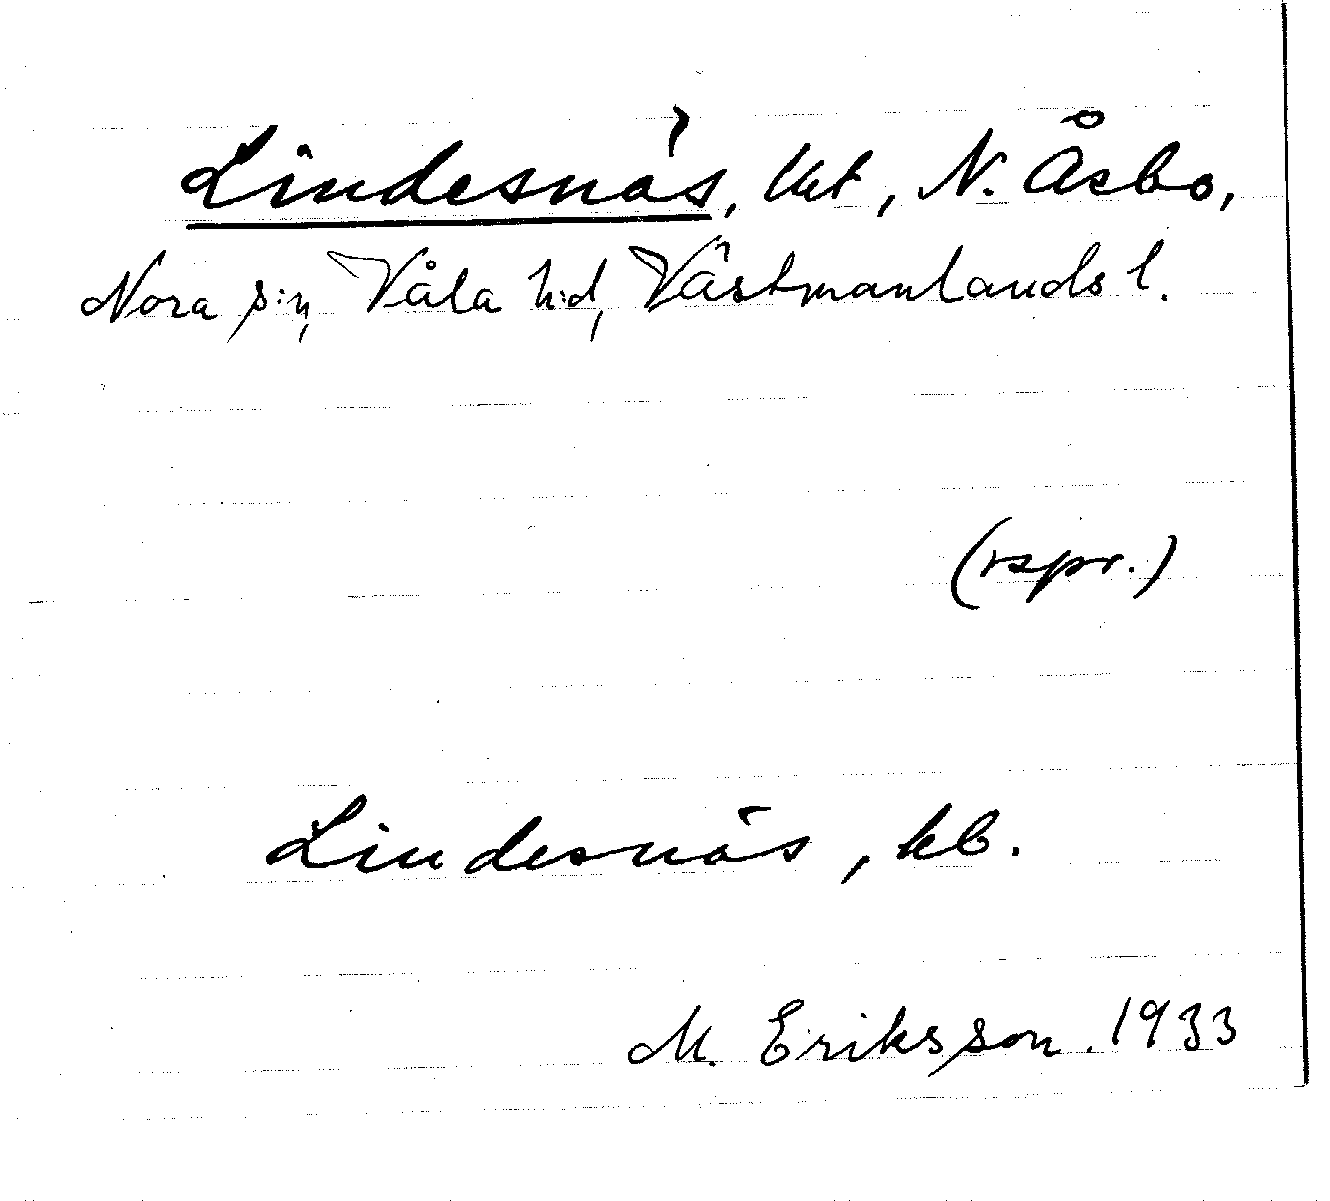 Lindesnäs, lht, N. Åsbo,
Nora s:n, Våla h:d, Västmanlands l.
(rspr.)
Lindesnäs, kb.
M. Eriksson. 1933